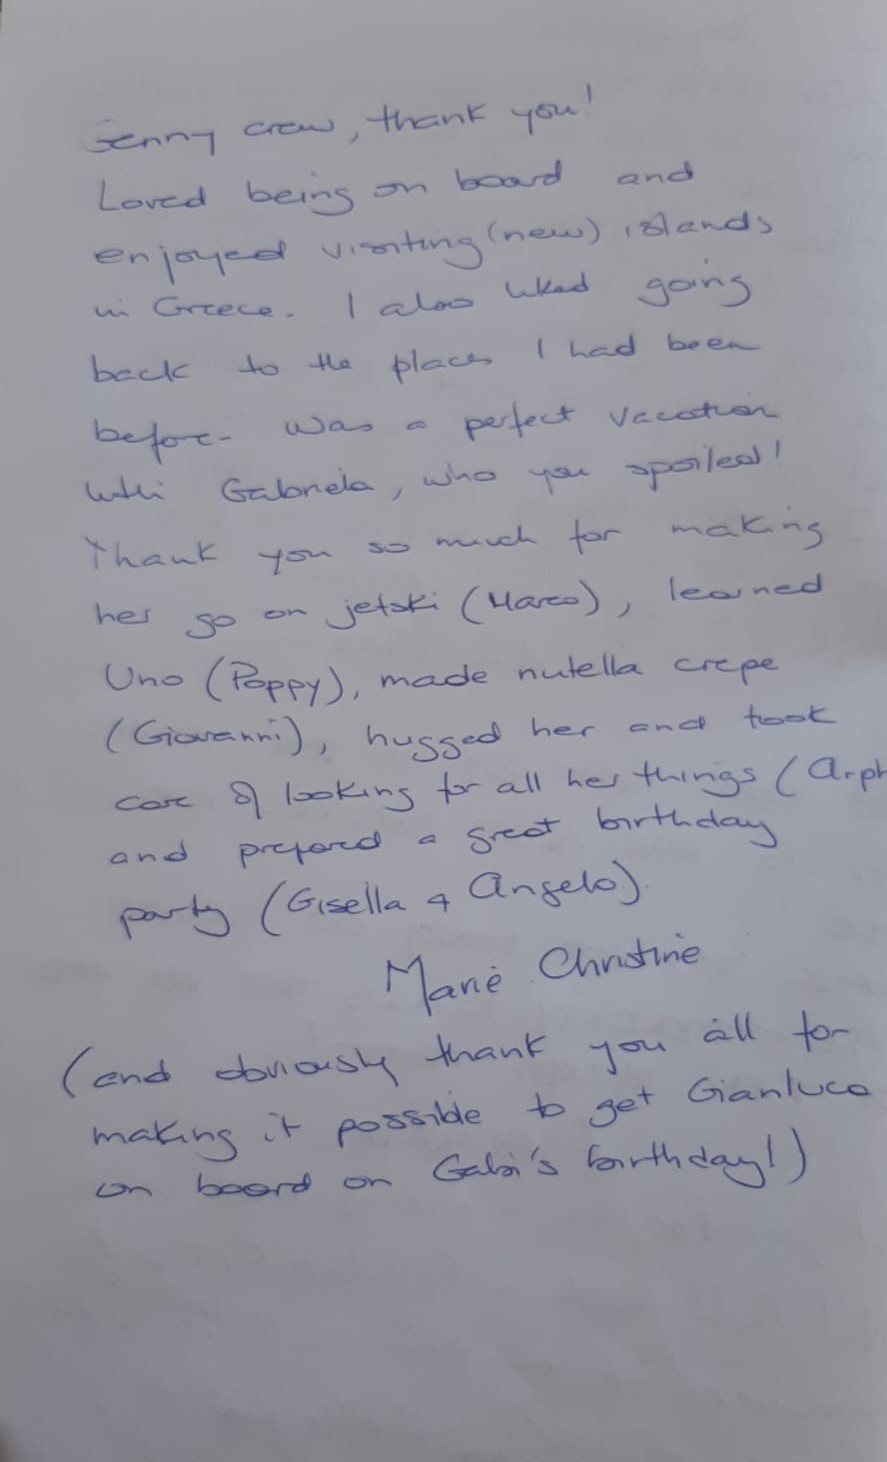 Genny crew, thank you!
Loved being on board and
enjoyed visiting (new) islands
in Greece. I also liked going
back to the places I had been
before. Was a perfect vacation
with Gabriela, who you spoiled!
Thank you so much for making
her go on jetski (Marco), learned
Uno (Poppy), made nutella crepe
(Giovanni), hugged her and took
care of looking for all her things (Arph
and prepared a great birthday
party (Gisella & Angelo).
Marie Christine
(and obviously thank you all for
making it possible to get Gianluca
on board on Gabi's birthday!)